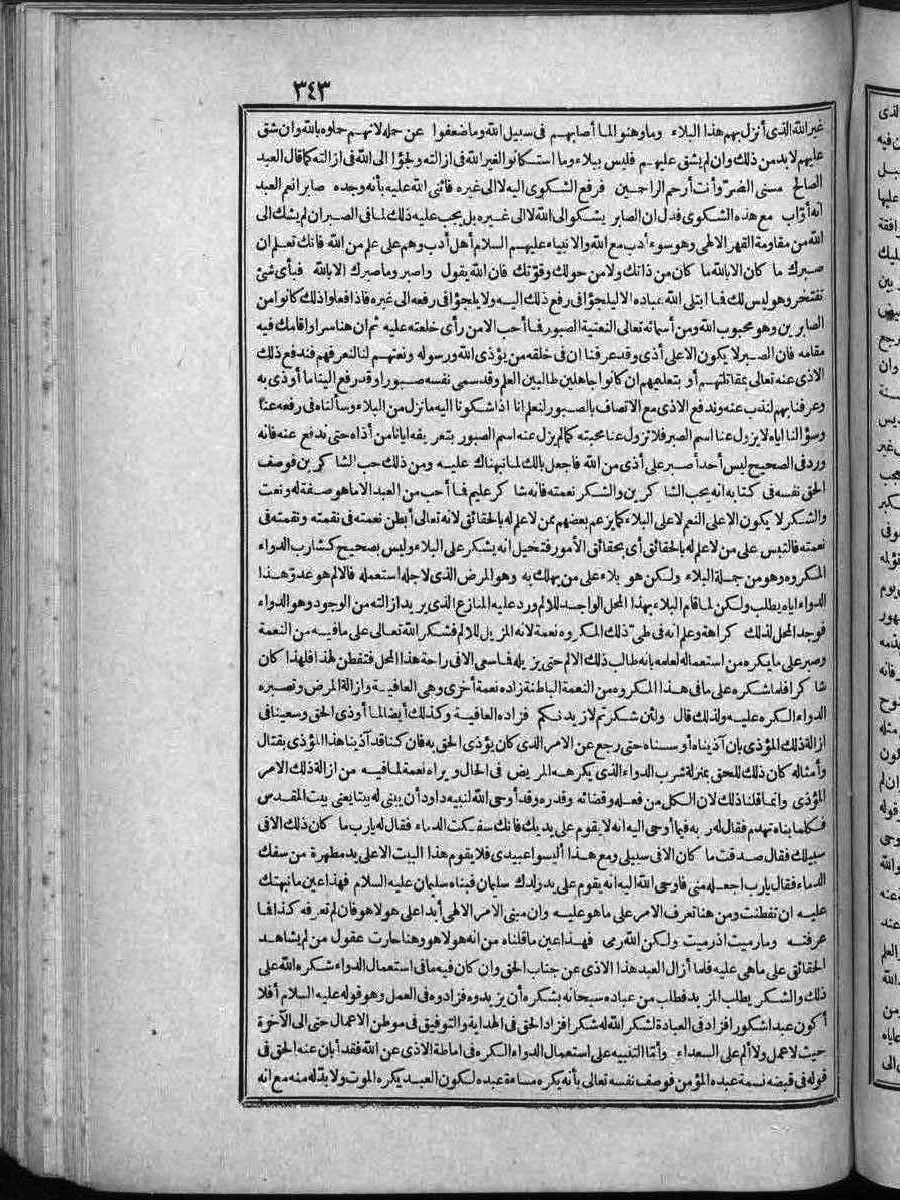 ٣٤٣
غير الله الذى أنزل بهم هذا البلاء وما وهنوا لما أصابهم فى سبيل الله وما ضعفوا عن حمله لانهم حملوه بالله وان شق
عليهم لابد من ذلك وان لم يشق عليهم فليس ببلاء وما استكانوا لغير الله فى ازالته ولجؤا الى الله فى ازالته كما قال العبد
الصالح مسنى الضر وأنت أرحم الراحمين فرفع الشكوى اليه لا الى غيره فاثنى الله عليه بأنه وجده صابرا نعم العبد
انه أواب مع هذه الشكوى فدل ان الصابر يشكو الى الله لا الى غيره بل يجب عليه ذلك لما فى الصبر ان لم يشك الى
الله من مقاومة القهر الالهى وهو سوء أدب مع الله والانبياء عليهم السلام أهل أدب وهم على علم من الله فانك تعلم ان
صبرك ما كان الا بالله ما كان من ذاتك ولا من حولك وقوتك فان الله يقول واصبر وما صبرك الا بالله فبأى شئ
تفتخر وهو ليس لك فما ابتلى الله عباده الا ليلجؤا فى رفع ذلك اليه ولا يلجؤا فى رفعه الى غيره فاذا فعلوا ذلك كانوا من
الصابرين وهو محبوب الله ومن أسمائه تعالى النعتية الصبور فما أحب الا من رأى خلعته عليه ثم ان هنا سرا واقامك فيه
مقامه فان الصبر لا يكون الا على أذى وقد عرفنا ان فى خلقه من يؤذى الله ورسوله ونعتهم لنا لنعرفهم فندفع ذلك
الاذى عنه تعالى بمقاتلتهم أو بتعليمهم ان كانوا جاهلين طالبين العلم وقد سمى نفسه صبورا وقد رفع الينا ما أوذى به
وعرفنا بهم لنذب عنه وندفع الاذى مع الاتصاف بالصبور لنعلم انا اذا شكونا اليه ما نزل من البلاء وسألناه فى رفعه عنا
وسؤالنا اياه لا يزول عنا اسم الصبر فلا تزول عنا محبته كما لم يزل عنه اسم الصبور بتعريفه ايانا من أذاه حتى ندفع عنه فانه
ورد فى الصحيح ليس أحد أصبر على أذى من الله فاجعل بالك لما نبهناك عليه ومن ذلك حب الشاكرين فوصف
الحق نفسه فى كتابه انه يحب الشاكرين والشكر نعته فانه شاكر عليم فما أحب من العبد الا ما هو صفة له ونعت
والشكر لا يكون الا على النعم لا على البلاء كما يزعم بعضهم ممن لا علم له بالحقائق لانه تعالى أبطن نعمته فى نقمته ونقمته فى
نعمته فالتبس على من لا علم له بالحقائق أى بحقائق الأمور فتخيل انه يشكر على البلاء وليس بصحيح كشارب الدواء
المكروه وهو من جملة البلاء ولكن هو بلاء على من يهلك به وهو المرض الذى لاجله استعمله فالالم هو عدو هذا
الدواء اياه يطلب ولكن لما قام البلاء بهذا المحل الواجد للالم ورد عليه المنازع الذى يريد ازالته من الوجود وهو الدواء
فوجد المحل لذلك كراهة وعلم انه فى طى ذلك المكروه نعمة لانه المزيل للالم فشكر الله تعالى على ما فيه من النعمة
وصبر على ما يكره من استعماله لعلمه بانه طالب ذلك الالم حتى يزيله فما سعى الا فى راحة هذا المحل فتفطن لهذا فلهذا كان
شاكرا فلما شكره على ما فى هذا المكروه من النعمة الباطنة زاده نعمة أخرى وهى العافية وازالة المرض وتصبره
الدواء الكره عليه ولذلك قال ولئن شكرتم لازيدنكم فزاده العافية وكذلك أيضا لما أوذى الحق وسعينا فى
ازالة ذلك المؤذى بان آذيناه أو سسناه حتى رجع عن الامر الذى كان يؤذى الحق به فان كنا قد آذينا هذا المؤذى بقتال
وأمثاله كان ذلك للحق بمنزلة شرب الدواء الذى يكرهه المريض فى الحال ويراه نعمة لما فيه من ازالة ذلك الامر
المؤذى وانما قلنا ذلك لان الكل من فعله وقضائه وقدره وقد أوحى الله لنبيه داود أن يبنى له بيتا يعنى بيت المقدس
فكلما بناه تهدم فقال له ربه فيما أوحى اليه انه لا يقوم على يديك فانك سفكت الدماء فقال له يارب ما كان ذلك الا فى
سبيلك فقال صدقت ما كان الا فى سبيلى ومع هذا أليسوا عبيدى فلا يقوم هذا البيت الا على يد مطهرة من سفك
الدماء فقال يارب اجعله منى فاوحى الله اليه انه يقوم على يد ولدك سليمان فبناه سليمان عليه السلام فهذا عين ما نبهتك
عليه ان تفطنت ومن هنا تعرف الامر على ما هو عليه وان مبنى الامر الالهى أبدا على هو لا هو فان لم تعرفه كذا فما
عرفته وما رميت اذ رميت ولكن الله رمى فهذا عين ما قلناه من انه هو لا هو وهنا حارت عقول من لم يشاهد
الحقائق على ما هى عليه فلما أزال العبد هذا الاذى عن جناب الحق وان كان فيه ما فى استعمال الدواء شكره الله على
ذلك والشكر يطلب المزيد فطلب من عباده سبحانه بشكره أن يزيدوه فزادوه فى العمل وهو قوله عليه السلام أفلا
أكون عبدا شكورا فزاد فى العبادة لشكر الله له شكرا فزاد الحق فى الهداية والتوفيق فى موطن الاعمال حتى الى الآخرة
حيث لا عمل ولا ألم على السعداء وأما التنبيه على استعمال الدواء الكره فى اماطة الاذى عن الله فقد أبان عنه الحق فى
قوله فى قبضه نسمة عبده المؤمن فوصف نفسه تعالى بأنه يكره مساءة عبده لكون العبد يكره الموت ولا بد له منه مع انه